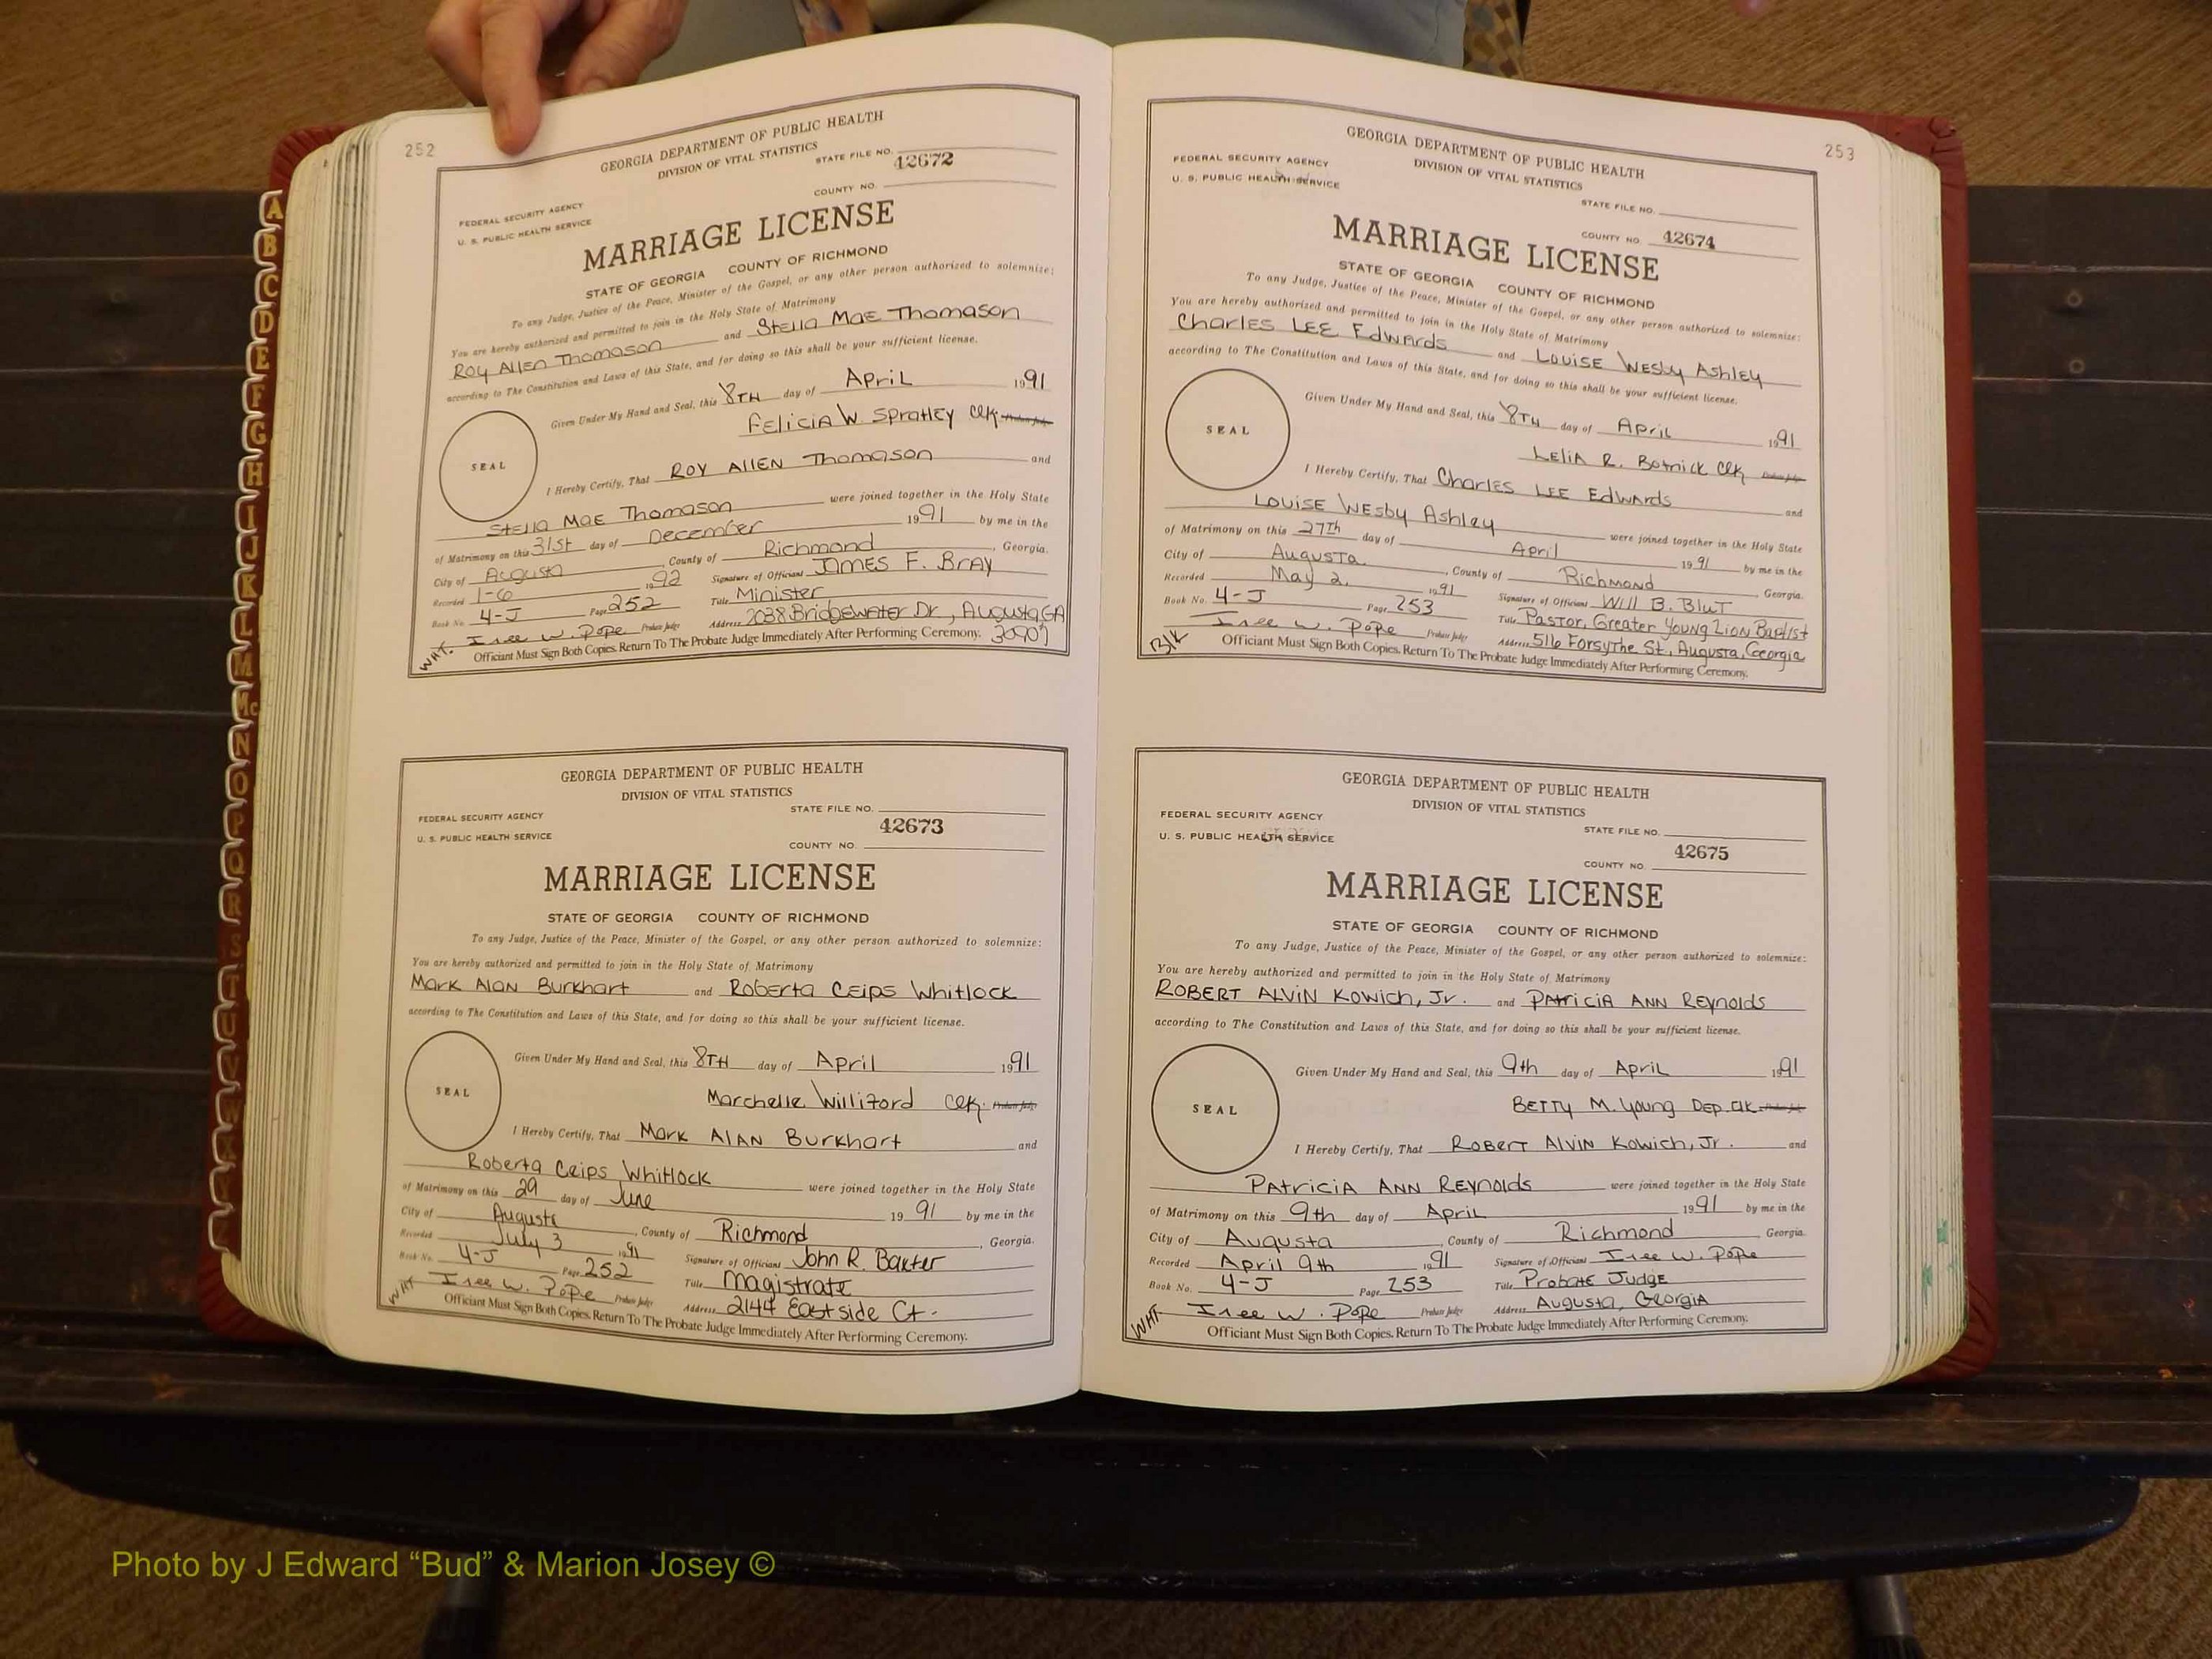 252
GEORGIA DEPARTMENT OF PUBLIC HEALTH
DIVISION OF VITAL STATISTICS
STATE FILE NO. 42672
COUNTY NO.
FEDERAL SECURITY AGENCY
U. S. PUBLIC HEALTH SERVICE
MARRIAGE LICENSE
STATE OF GEORGIA COUNTY OF RICHMOND
To any Judge, Justice of the Peace, Minister of the Gospel, or any other person authorized to solemnize:
You are hereby authorized and permitted to join in the Holy State of Matrimony
Roy Allen Thomason and Stella Mae Thomason
according to The Constitution and Laws of this State, and for doing so this shall be your sufficient license.
Given Under My Hand and Seal, this 8TH day of April 1991
Felicia W. Spratley Clk. Probate Judge
SEAL
I Hereby Certify, That Roy Allen Thomason and
Stella Mae Thomason were joined together in the Holy State
of Matrimony on this 31st day of December 1991 by me in the
City of Augusta, County of Richmond, Georgia.
Recorded 1-6 1992 Signature of Officiant James F. Bray
Book No. 4-J Page 252 Title Minister
Isee W. Pope Probate Judge Address 2038 Bridgewater Dr., Augusta, GA 30907
Wht.
Officiant Must Sign Both Copies. Return To The Probate Judge Immediately After Performing Ceremony.
GEORGIA DEPARTMENT OF PUBLIC HEALTH
DIVISION OF VITAL STATISTICS
STATE FILE NO.
FEDERAL SECURITY AGENCY
42673
U. S. PUBLIC HEALTH SERVICE
COUNTY NO.
MARRIAGE LICENSE
STATE OF GEORGIA COUNTY OF RICHMOND
To any Judge, Justice of the Peace, Minister of the Gospel, or any other person authorized to solemnize:
You are hereby authorized and permitted to join in the Holy State of Matrimony
Mark Alan Burkhart and Roberta Ceips Whitlock
according to The Constitution and Laws of this State, and for doing so this shall be your sufficient license.
Given Under My Hand and Seal, this 8TH day of April 1991
Marchelle Williford Clk. Probate Judge
SEAL
I Hereby Certify, That Mark Alan Burkhart and
Roberta Ceips Whitlock were joined together in the Holy State
of Matrimony on this 29 day of June 1991 by me in the
City of Augusta, County of Richmond, Georgia.
Recorded July 3 1991 Signature of Officiant John R. Baxter
Book No. 4-J Page 252 Title Magistrate
Isee W. Pope Probate Judge Address 2144 Eastside Ct.
Wht
Officiant Must Sign Both Copies. Return To The Probate Judge Immediately After Performing Ceremony.
253
GEORGIA DEPARTMENT OF PUBLIC HEALTH
DIVISION OF VITAL STATISTICS
FEDERAL SECURITY AGENCY
U. S. PUBLIC HEALTH SERVICE
STATE FILE NO.
COUNTY NO. 42674
MARRIAGE LICENSE
STATE OF GEORGIA COUNTY OF RICHMOND
To any Judge, Justice of the Peace, Minister of the Gospel, or any other person authorized to solemnize:
You are hereby authorized and permitted to join in the Holy State of Matrimony
Charles Lee Edwards and Louise Wesby Ashley
according to The Constitution and Laws of this State, and for doing so this shall be your sufficient license.
Given Under My Hand and Seal, this 8TH day of April 1991
Lelia R. Botnick Clk Probate Judge
SEAL
I Hereby Certify, That Charles Lee Edwards and
Louise Wesby Ashley were joined together in the Holy State
of Matrimony on this 27th day of April 1991 by me in the
City of Augusta, County of Richmond, Georgia.
Recorded May 2, 1991 Signature of Officiant Will B. Blut
Book No. 4-J Page 253 Title Pastor, Greater Young Zion Baptist
Isee W. Pope Probate Judge Address 516 Forsythe St, Augusta, Georgia
Blk
Officiant Must Sign Both Copies. Return To The Probate Judge Immediately After Performing Ceremony.
GEORGIA DEPARTMENT OF PUBLIC HEALTH
DIVISION OF VITAL STATISTICS
FEDERAL SECURITY AGENCY
STATE FILE NO.
U. S. PUBLIC HEALTH SERVICE
42675
COUNTY NO.
MARRIAGE LICENSE
STATE OF GEORGIA COUNTY OF RICHMOND
To any Judge, Justice of the Peace, Minister of the Gospel, or any other person authorized to solemnize:
You are hereby authorized and permitted to join in the Holy State of Matrimony
Robert Alvin Kowich, Jr. and Patricia Ann Reynolds
according to The Constitution and Laws of this State, and for doing so this shall be your sufficient license.
Given Under My Hand and Seal, this 9th day of April 1991
Betty M. Young Dep. Clk. Probate Judge
SEAL
I Hereby Certify, That Robert Alvin Kowich, Jr. and
Patricia Ann Reynolds were joined together in the Holy State
of Matrimony on this 9th day of April 1991 by me in the
City of Augusta, County of Richmond Georgia.
Recorded April 9th 1991 Signature of Officiant Isee W. Pope
Book No. 4-J Page 253 Title Probate Judge
Isee W. Pope Probate Judge Address Augusta, Georgia
Wht
Officiant Must Sign Both Copies. Return To The Probate Judge Immediately After Performing Ceremony.
A
B
C
D
E
F
G
H
I
J
K
L
M
Mc
N
O
P
Q
R
S
T
U
V
W
Photo by J Edward “Bud” & Marion Josey ©